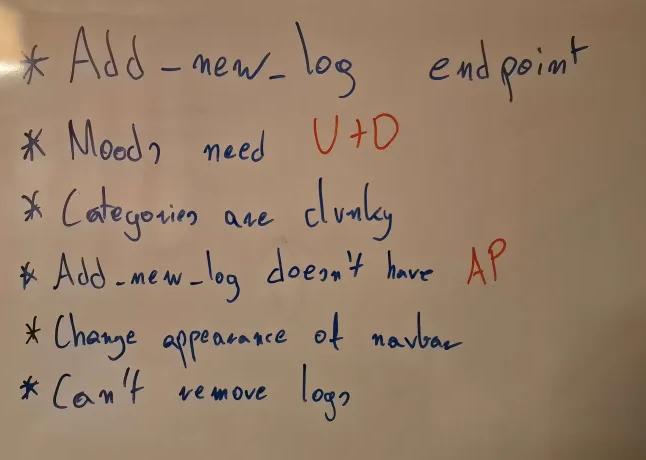 * Add_new_log endpoint
* Moods need U+D
* Categories are clunky
* Add_new_log doesn't have AP
* Change appearance of navbar
* Can't remove logs